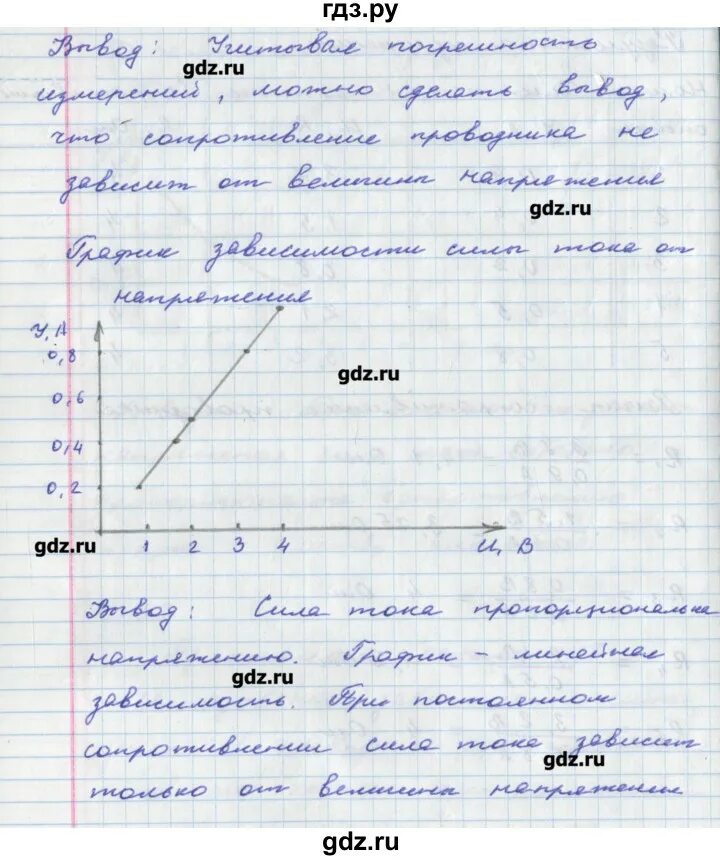 гдз.ру
Вывод: Учитывая погрешность
gdz.ru
измерений, можно сделать вывод,
что сопротивление проводника не
зависит от величины напряжения
gdz.ru
График зависимости силы тока от
напряжения
У, А
0,8
gdz.ru
0,6
0,4
0,2
gdz.ru
1 2 3 4 U, В
Вывод: Сила тока пропорциональна
напряжению. График - линейная
gdz.ru
зависимость. При постоянном
сопротивлении сила тока зависит
gdz.ru
только от величины напряжения
gdz.ru